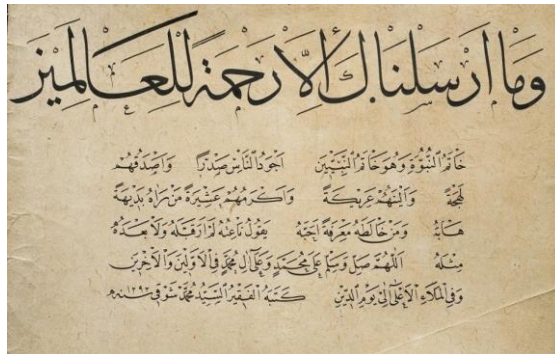 وَمَا أَرْسَلْنَاكَ إِلَّا رَحْمَةً لِلْعَالَمِينَ
خَاتَمُ النُّبُوَّةِ وَهُوَ خَاتَمُ النَّبِيِّينَ اَجْوَدُ النَّاسِ صَدْرًا وَاَصْدَقُهُمْ
لَهْجَةً وَاَلْيَنُهُمْ عَرِيكَةً وَاَكْرَمُهُمْ عَشِيرَةً مَنْ رَاٰهُ بَدِيهَةً
هَابَهُ وَمَنْ خَالَطَهُ مَعْرِفَةً اَحَبَّهُ يَقُولُ نَاعِتُهُ لَمْ اَرَ قَبْلَهُ وَلَا بَعْدَهُ
مِثْلَهُ اَللّٰهُمَّ صَلِّ وَسَلِّمْ عَلَى مُحَمَّدٍ وَعَلَى آلِ مُحَمَّدٍ فِي الْاَوَّلِينَ وَالْآخِرِينَ
وَفِي الْمَلَاءِ الْاَعْلَى اِلَى يَوْمِ الدِّينِ كَتَبَهُ الْفَقِيرُ السَّيِّدُ مُحَمَّد شَوْقِي سنه ١٢٩٢